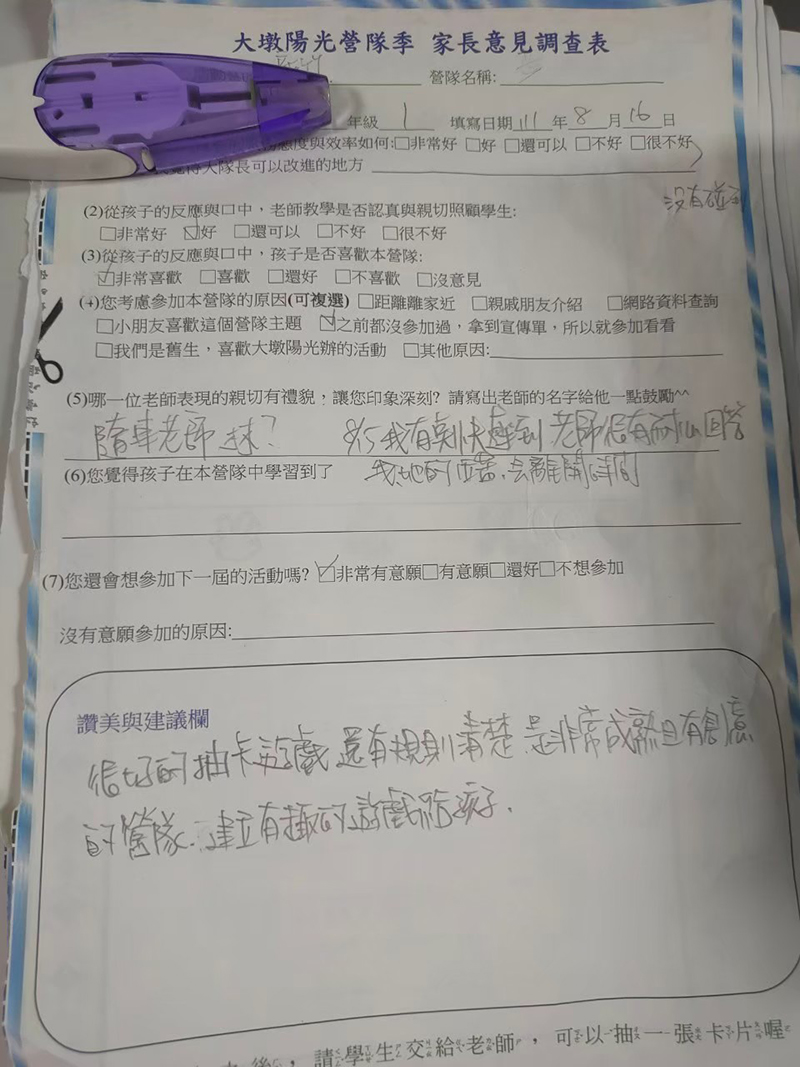 大墩陽光營隊季 家長意見調查表
營隊名稱:
年級 1 填寫日期 111 年 8 月 16 日
態度與效率如何:□非常好 □好 □還可以 □不好 □很不好
覺得大隊長可以改進的地方
沒有碰到
(2)從孩子的反應與口中,老師教學是否認真與親切照顧學生:
□非常好 ☑好 □還可以 □不好 □很不好
(3)從孩子的反應與口中,孩子是否喜歡本營隊:
☑非常喜歡 □喜歡 □還好 □不喜歡 □沒意見
(4)您考慮參加本營隊的原因(可複選) □距離離家近 □親戚朋友介紹 □網路資料查詢
□小朋友喜歡這個營隊主題 ☑之前都沒參加過,拿到宣傳單,所以就參加看看
□我們是舊生,喜歡大墩陽光辦的活動 □其他原因:
(5)哪一位老師表現的親切有禮貌,讓您印象深刻? 請寫出老師的名字給他一點鼓勵^^
老師 ? 8/5 我有 到 老師很有耐心回答
(6)您覺得孩子在本營隊中學習到了 我 的 離開時間
(7)您還會想參加下一屆的活動嗎? ☑非常有意願□有意願□還好□不想參加
沒有意願參加的原因:
讚美與建議欄
很好的抽卡遊戲 還有規則清楚 是非常成熟且有創意
的營隊. 建立有趣的遊戲給孩子.
後,請學生交給老師,可以抽一張卡片喔